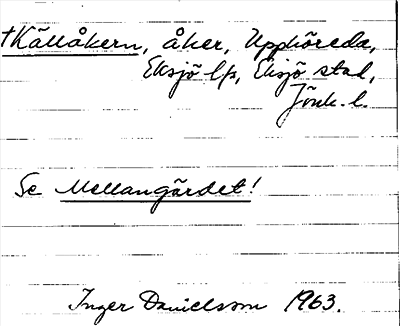 †Källåkern, åker, Upphöreda,
Eksjö lfs, Eksjö stad,
Jönk. l.
Se Mellangärdet!
Inger Danielsson 1963.